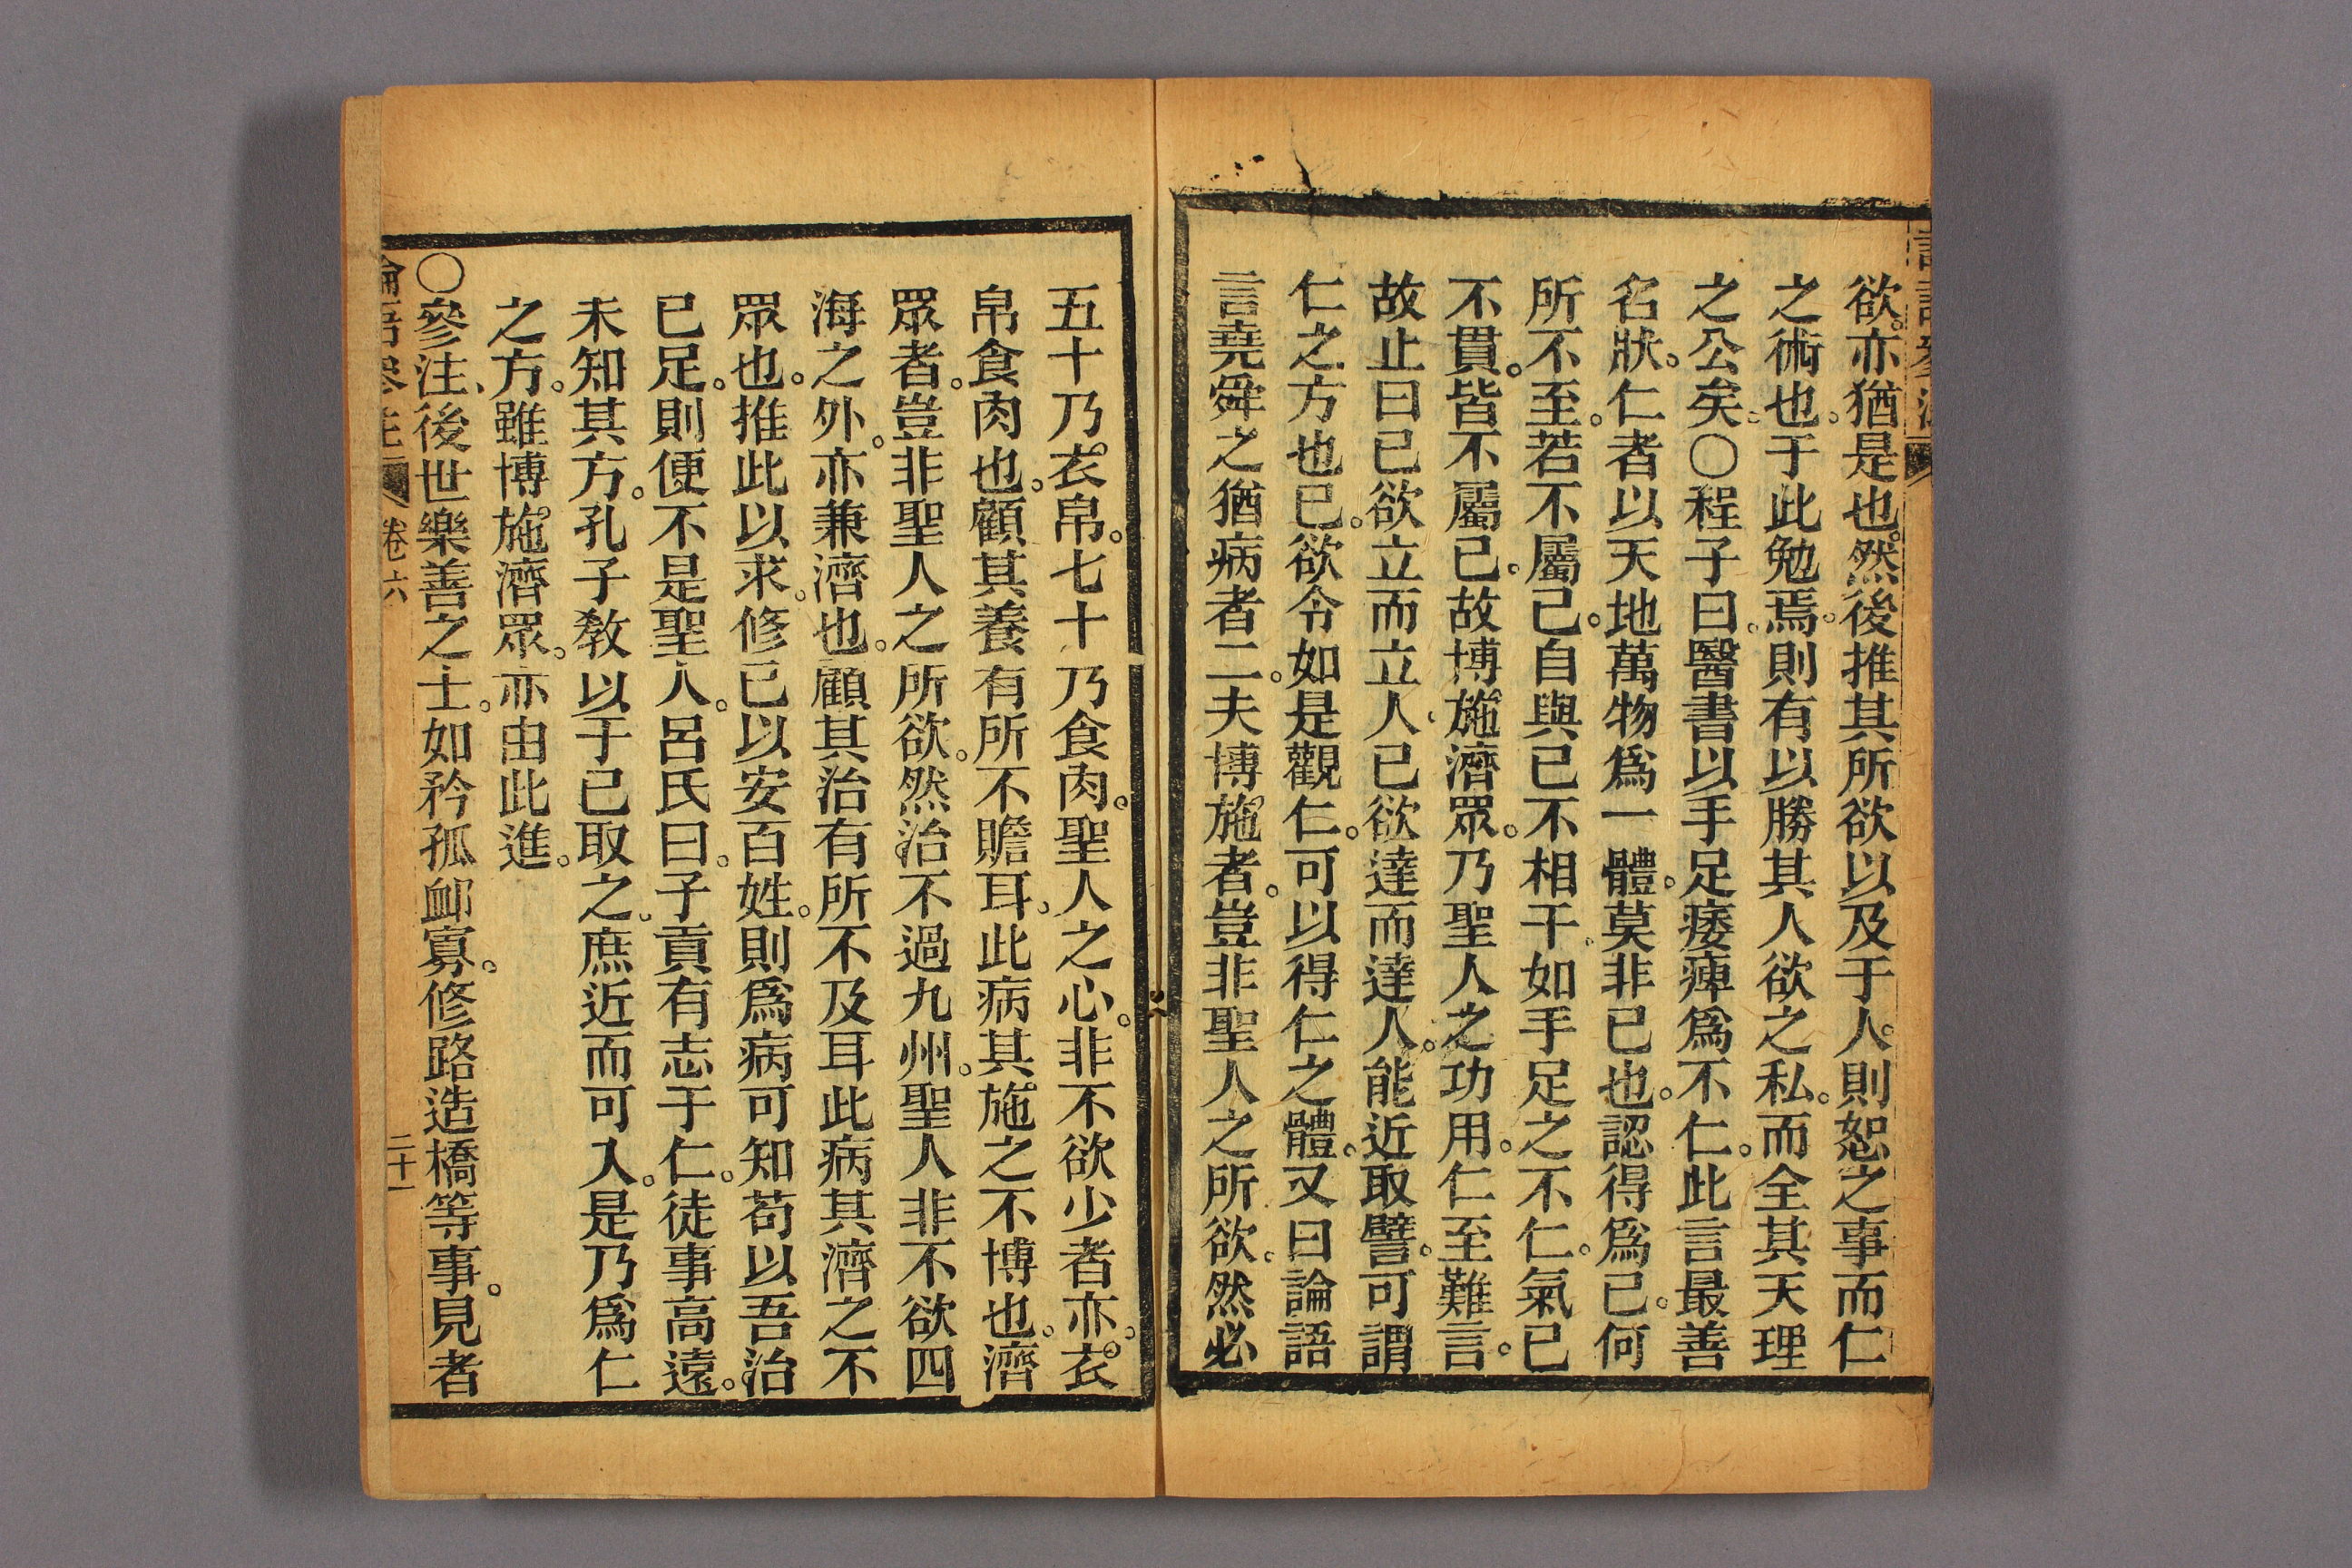 欲。亦猶是也。然後推其所欲以及于人。則恕之事而仁
之術也。于此勉焉。則有以勝其人欲之私。而全其天理
之公矣。○程子曰。醫書以手足痿痺爲不仁。此言最善
名狀。仁者以天地萬物爲一體。莫非已也。認得爲已。何
所不至。若不屬己。自與已不相干。如手足之不仁。氣已
不貫。皆不屬己。故博施濟眾。乃聖人之功用。仁至難言。
故止曰已欲立而立人。已欲達而達人。能近取譬。可謂
仁之方也已。欲令如是觀仁。可以得仁之體。又曰論語
言堯舜之猶病者二。夫博施者。豈非聖人之所欲。然必
五十乃衣帛。七十乃食肉。聖人之心。非不欲少者亦衣
帛食肉也。顧其養有所不贍耳。此病其施之不博也。濟
眾者。豈非聖人之所欲。然治不過九州。聖人非不欲四
海之外。亦兼濟也。顧其治有所不及耳此病其濟之不
眾也。推此以求。修已以安百姓。則爲病可知苟以吾治
已足。則便不是聖人。呂氏曰。子貢有志于仁。徒事高遠。
未知其方。孔子敎以于己取之。庶近而可入。是乃爲仁
之方。雖博施濟眾。亦由此進。
○參注、後世樂善之士。如矜孤卹寡。修路造橋等事。見者
論語參注
卷六
二十一